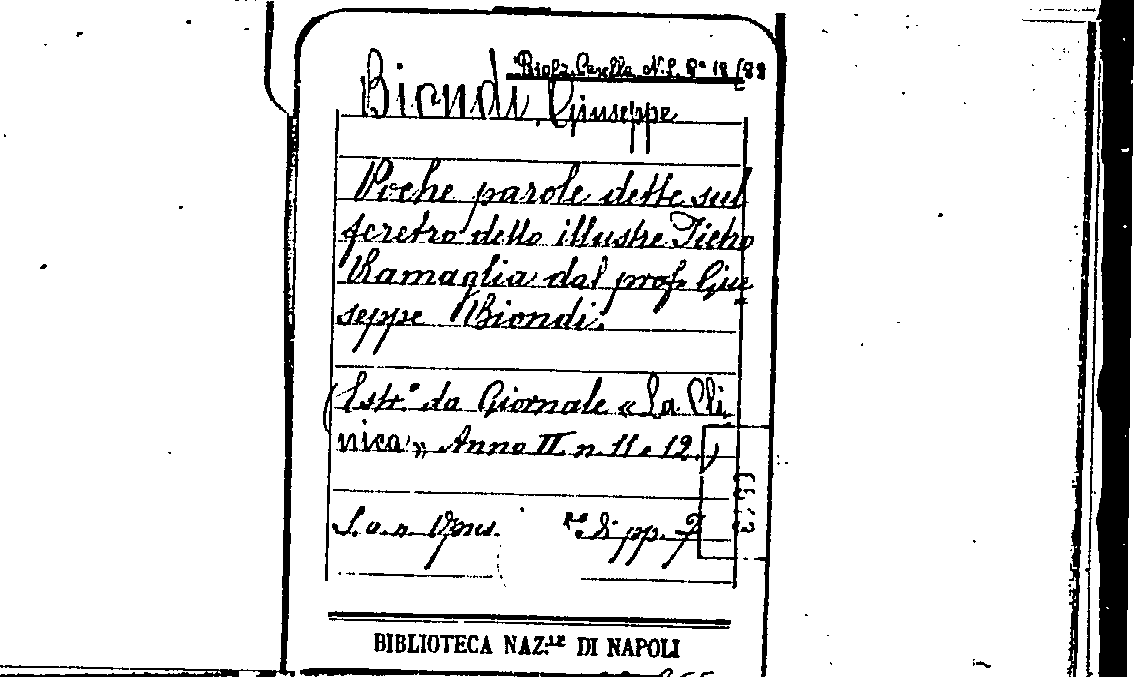 Biondi, Giuseppe
Poche parole dette sul
feretro dello illustre Pietro
Ramaglia dal prof. Giu
seppe Biondi.
(Estr.º da Giornale «La Cli
nica» Anno II n. 11 e 12.)
S. a. n. pp. 7
BIBLIOTECA NAZ.LE DI NAPOLI